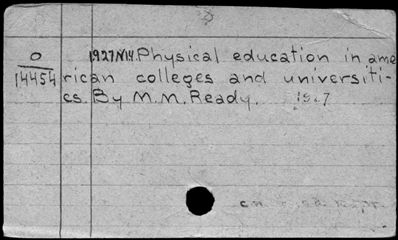 O 1927 N14. Physical education in ame
14454 rican colleges and universiti-
cs. By M.M. Ready. 1927